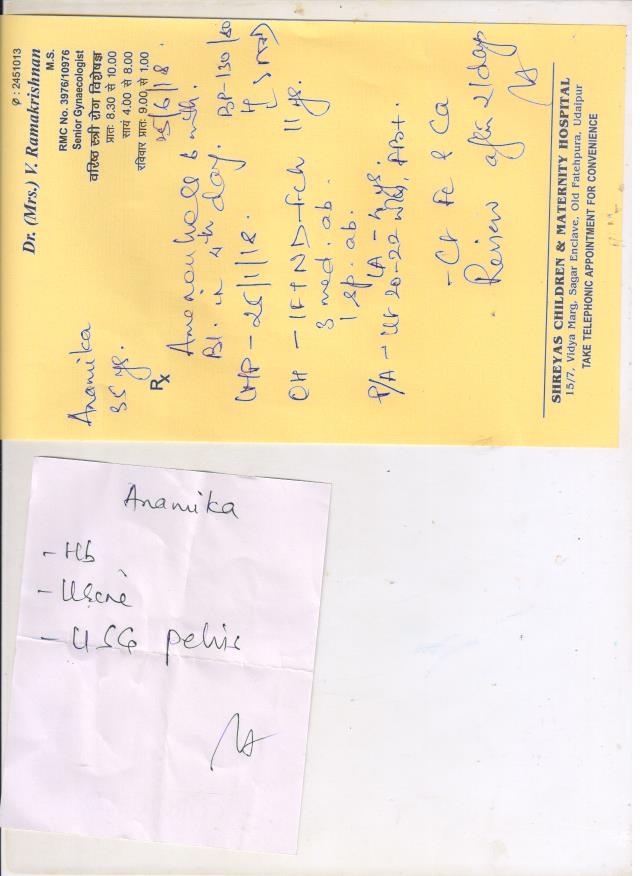 Ø : 2451013
Dr. (Mrs.) V. Ramakrishnan
M.S.
RMC No. 3976/10976
Senior Gynaecologist
वरिष्ठ स्त्री रोग विशेषज्ञ
प्रातः 8.30 से 10.00
सायं 4.00 से 8.00
रविवार प्रातः 9.00 से 1.00
Anamika
35 yrs.
25/6/18.
Rx
day. BP-130/80
LMP - 25/1/18.
OH - 1FTND-Fch 11 yrs.
3 med. ab.
1 sp. ab.
LA - 4 yrs.
P/A - Ut 20-22 wks, FH+.
- Ct Fe & Ca
Review after 21 days
SHREYAS CHILDREN & MATERNITY HOSPITAL
15/7, Vidya Marg, Sagar Enclave, Old Fatehpura, Udaipur
TAKE TELEPHONIC APPOINTMENT FOR CONVENIENCE
Anamika
- Hb
- USG pelvis